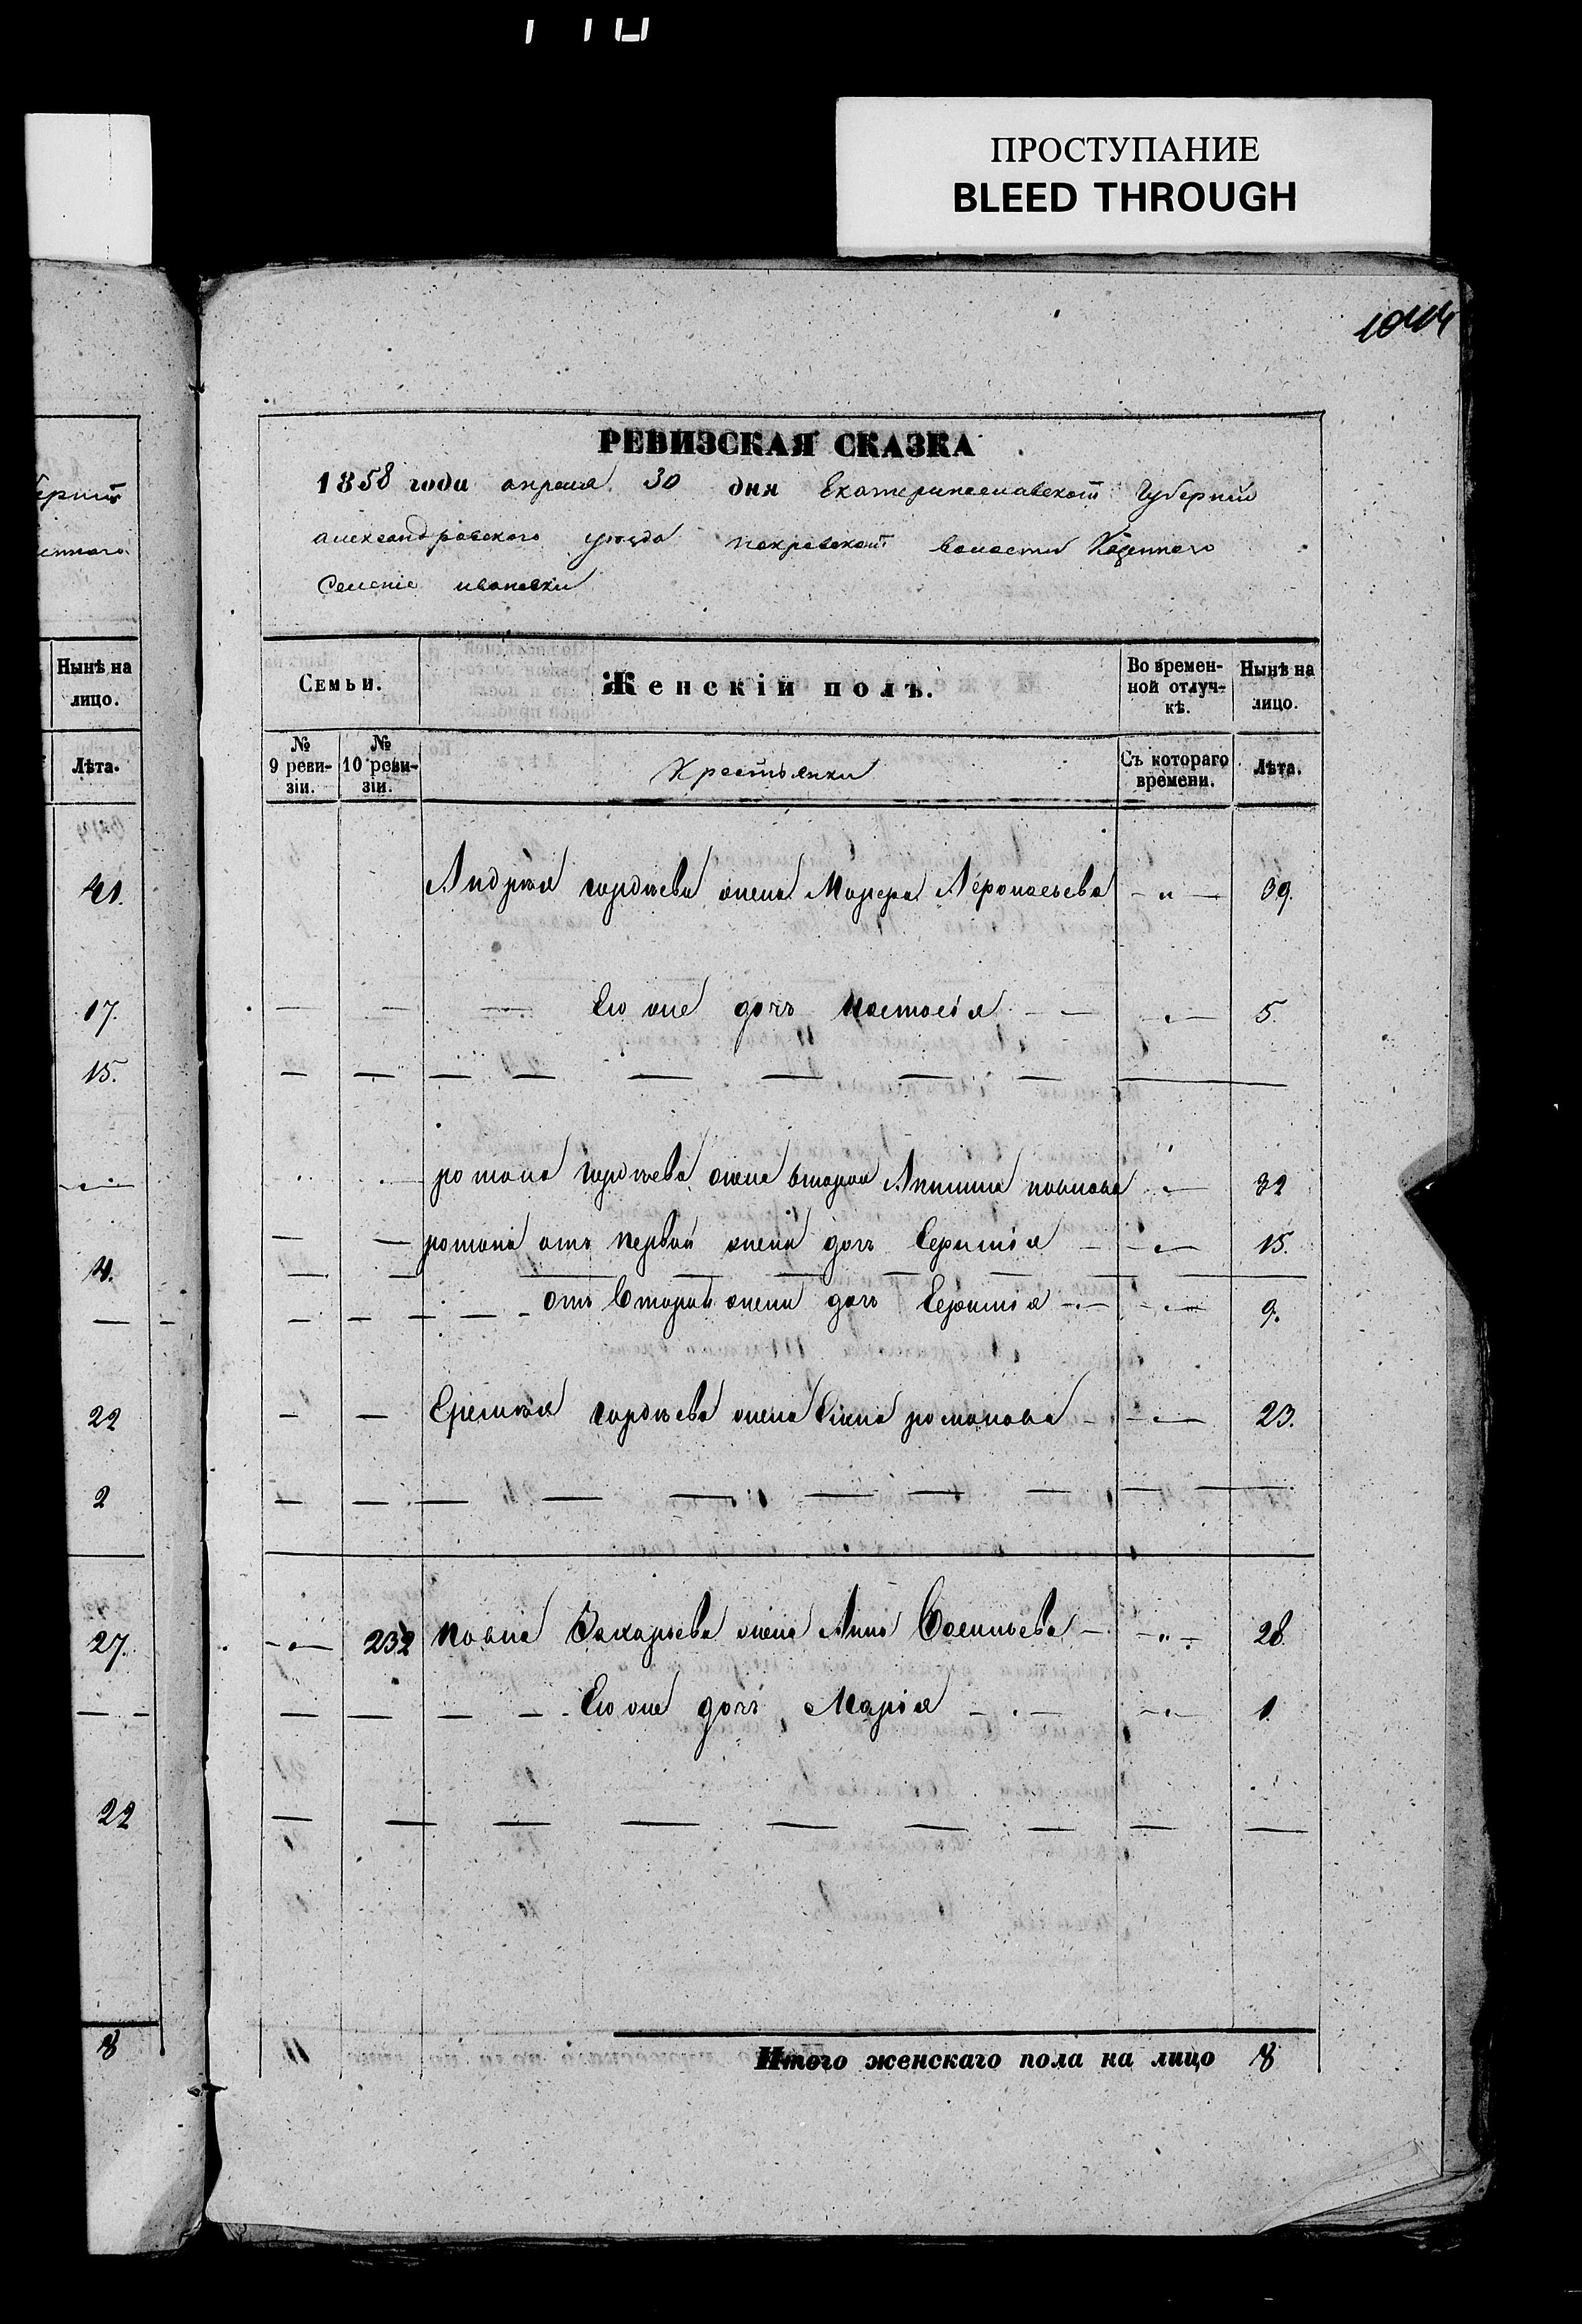 ПРОСТУПАНИЕ
BLEED THROUGH
1044
РЕВИЗСКАЯ СКАЗКА
1858 года апреля 30 дня Екатеринославской Губернии
александровского уезда покровской волости Казенного
Селение ивановки
Нынѣ на лицо.
Лѣта.
41.
17.
15.
4.
22
2
27.
22
8
Семьи.
Женскій полъ.
Во времен-ной отлуч-кѣ.
Нынѣ на лицо.
№ 9 реви-зіи.
№ 10 реви-зіи.
Крестьянки
Съ котораго времени.
Лѣта.
Андрея гордѣева жена Марфа 39.
Его же дочь Настасія 5.
романа гордѣева жена вторая 32
романа отъ первой жены дочь 15.
отъ Второй жены дочь 9.
Еремѣя гордѣева жена романова 23.
232 павла Захарьева жена Анна Васильева 28
Его же дочь Марія 1.
Итого женскаго пола на лицо 8